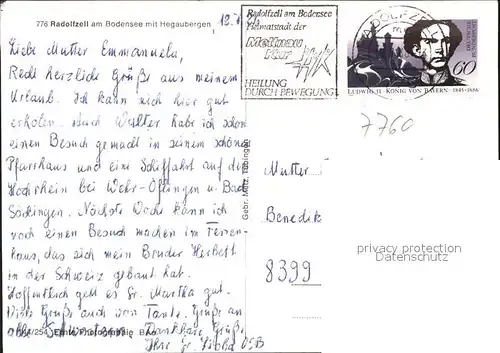 776 Radolfzell am Bodensee mit Hegaubergen
12.
Liebe Mutter Emmanuela,
Recht herzliche Grüße aus meinem
Urlaub. Ich kann mich hier gut
erholen. Auch Walter habe ich schon
einen Besuch gemacht in seinem schönen
Pfarrhaus und eine Schiffahrt auf dem
Hochrhein bei Wehr-Öflingen u. Bad
Säckingen. Nächste Woche kann ich
noch einen Besuch machen im Ferien-
haus, das sich mein Bruder Herbert
in der Schweiz gebaut hat.
Hoffentlich geht es Sr. Martha gut.
Viele Grüße auch von Tante. Grüße an
alle Schwestern. Dankbare Grüße
Ihre Sr. OSB
Gebr. Metz, Tübingen
Radolfzell am Bodensee
Heimatstadt der
Mettnau
Kur
HEILUNG
DURCH BEWEGUNG
RADOLFZELL
60
LUDWIG II. KÖNIG VON BAYERN · 1845-1886
7760
Mutter
Benedik
8399
privacy protection
Datenschutz